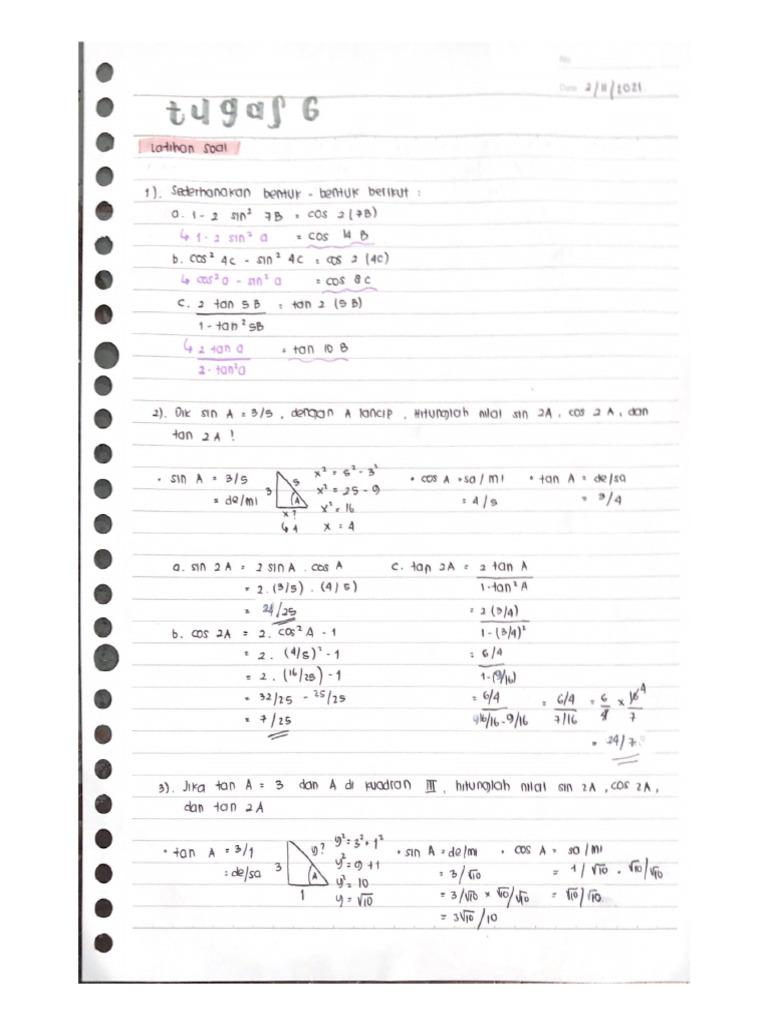 No
Date 2/11/2021
tugas 6
Latihan Soal
1). Sederhanakan bentuk - bentuk berikut :
a. 1 - 2 sin² 7B = cos 2 (7B)
↳ 1 - 2 sin² a = cos 14 B
b. cos² 4c - sin² 4c = cos 2 (4c)
↳ cos² a - sin² a = cos 8c
c. 2 tan 5B / 1 - tan² 5B = tan 2 (5B)
↳ 2 tan a / 2 - tan² a = tan 10 B
2). Dik sin A = 3/5 , dengan A lancip . Hitunglah nilai sin 2A, cos 2A, dan
tan 2A !
• sin A = 3/5
= de/mi
3 5 A x?
↳ 4
x² = 5² - 3²
x² = 25 - 9
x² = 16
x = 4
• cos A = sa/mi
= 4/5
• tan A = de/sa
= 3/4
a. sin 2A = 2 sin A . cos A
= 2 . (3/5) . (4/5)
= 24/25
b. cos 2A = 2 . cos² A - 1
= 2 . (4/5)² - 1
= 2 . (16/25) - 1
= 32/25 - 25/25
= 7/25
c. tan 2A = 2 tan A / 1 - tan² A
= 2 (3/4) / 1 - (3/4)²
= 6/4 / 1 - (9/16)
= 6/4 / 16/16 - 9/16 = 6/4 / 7/16 = 6/4 × 16 4/7
= 24/7
3). Jika tan A = 3 dan A di kuadran III , hitunglah nilai sin 2A, cos 2A,
dan tan 2A
• tan A = 3/1
= de/sa
3 y? A
1
y² = 3² + 1²
y² = 9 + 1
y² = 10
y = √10
• sin A = de/mi
= 3/√10
= 3/√10 × √10/√10
= 3√10/10
• cos A = sa/mi
= 1/√10 . √10/√10
= √10/10.